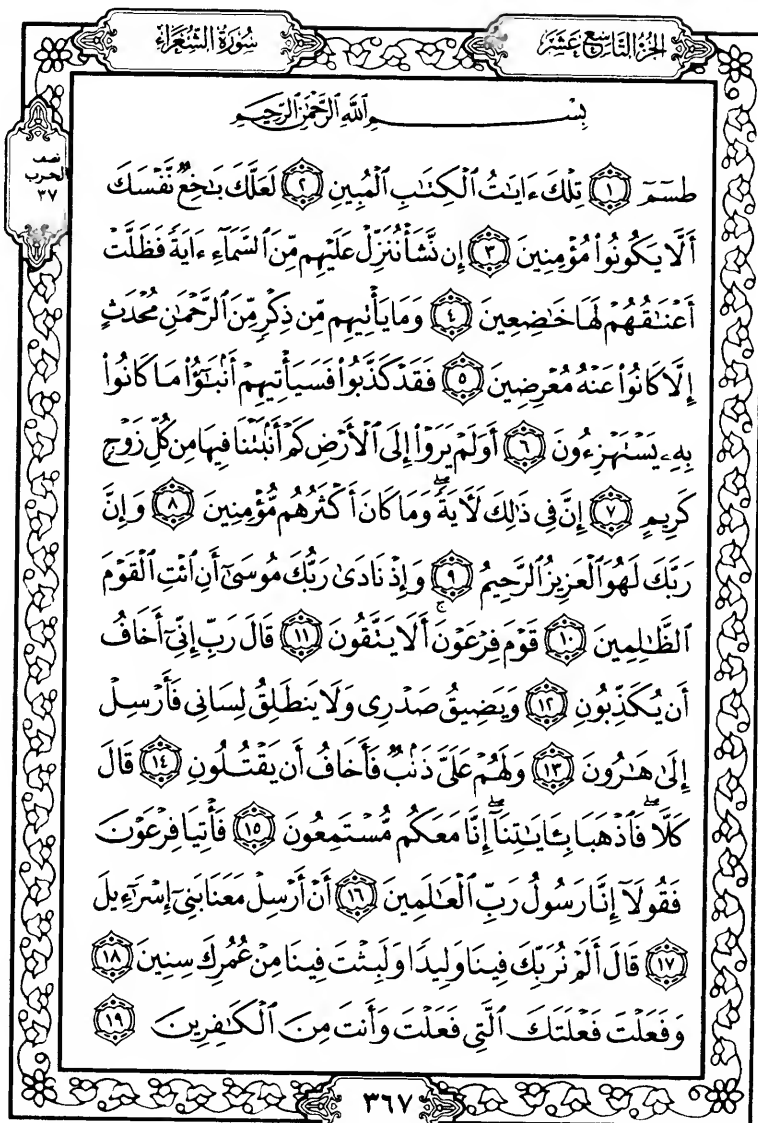 الجزء التاسع عشر
سورة الشعراء
نصف
الحزب
٣٧
بِسْمِ ٱللَّهِ ٱلرَّحْمَٰنِ ٱلرَّحِيمِ
طسٓمٓ ١ تِلْكَ ءَايَٰتُ ٱلْكِتَٰبِ ٱلْمُبِينِ ٢ لَعَلَّكَ بَٰخِعٌ نَّفْسَكَ
أَلَّا يَكُونُوا۟ مُؤْمِنِينَ ٣ إِن نَّشَأْ نُنَزِّلْ عَلَيْهِم مِّنَ ٱلسَّمَآءِ ءَايَةً فَظَلَّتْ
أَعْنَٰقُهُمْ لَهَا خَٰضِعِينَ ٤ وَمَا يَأْتِيهِم مِّن ذِكْرٍ مِّنَ ٱلرَّحْمَٰنِ مُحْدَثٍ
إِلَّا كَانُوا۟ عَنْهُ مُعْرِضِينَ ٥ فَقَدْ كَذَّبُوا۟ فَسَيَأْتِيهِمْ أَنۢبَٰٓؤُا۟ مَا كَانُوا۟
بِهِۦ يَسْتَهْزِءُونَ ٦ أَوَلَمْ يَرَوْا۟ إِلَى ٱلْأَرْضِ كَمْ أَنۢبَتْنَا فِيهَا مِن كُلِّ زَوْجٍ
كَرِيمٍ ٧ إِنَّ فِى ذَٰلِكَ لَءَايَةًۖ وَمَا كَانَ أَكْثَرُهُم مُّؤْمِنِينَ ٨ وَإِنَّ
رَبَّكَ لَهُوَ ٱلْعَزِيزُ ٱلرَّحِيمُ ٩ وَإِذْ نَادَىٰ رَبُّكَ مُوسَىٰٓ أَنِ ٱئْتِ ٱلْقَوْمَ
ٱلظَّٰلِمِينَ ١٠ قَوْمَ فِرْعَوْنَۚ أَلَا يَتَّقُونَ ١١ قَالَ رَبِّ إِنِّىٓ أَخَافُ
أَن يُكَذِّبُونِ ١٢ وَيَضِيقُ صَدْرِى وَلَا يَنطَلِقُ لِسَانِى فَأَرْسِلْ
إِلَىٰ هَٰرُونَ ١٣ وَلَهُمْ عَلَىَّ ذَنۢبٌ فَأَخَافُ أَن يَقْتُلُونِ ١٤ قَالَ
كَلَّاۖ فَٱذْهَبَا بِـَٔايَٰتِنَآۖ إِنَّا مَعَكُم مُّسْتَمِعُونَ ١٥ فَأْتِيَا فِرْعَوْنَ
فَقُولَآ إِنَّا رَسُولُ رَبِّ ٱلْعَٰلَمِينَ ١٦ أَنْ أَرْسِلْ مَعَنَا بَنِىٓ إِسْرَٰٓءِيلَ
١٧ قَالَ أَلَمْ نُرَبِّكَ فِينَا وَلِيدًا وَلَبِثْتَ فِينَا مِنْ عُمُرِكَ سِنِينَ ١٨
وَفَعَلْتَ فَعْلَتَكَ ٱلَّتِى فَعَلْتَ وَأَنتَ مِنَ ٱلْكَٰفِرِينَ ١٩
٣٦٧